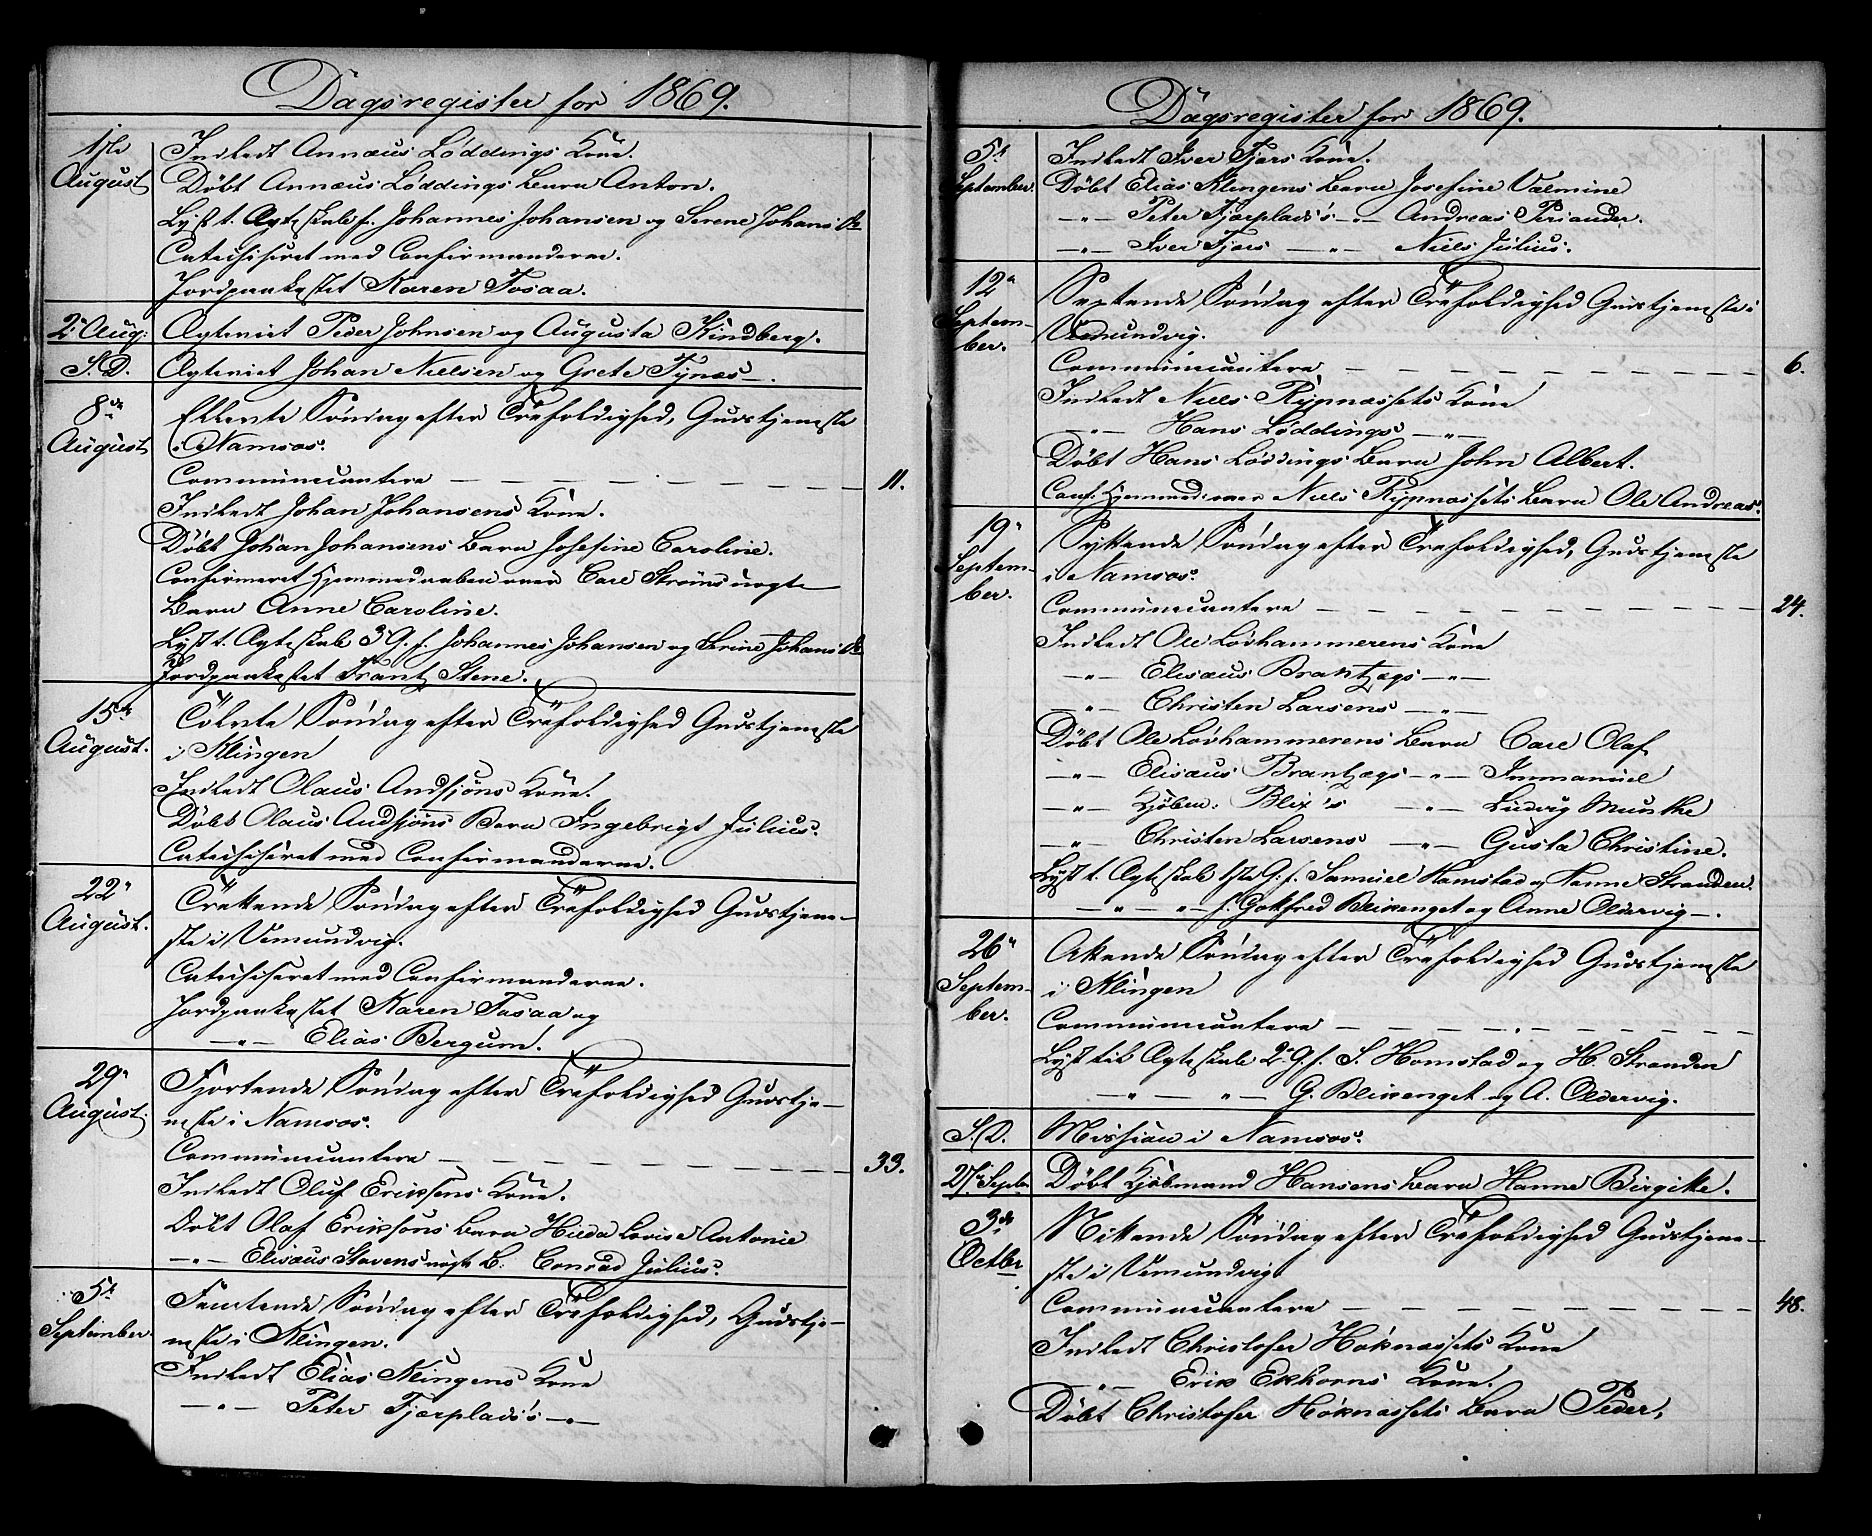 Dagsregister for 1869.
1ste August
Indledt Annæus Løddings Kone.
Døbt Annæus Løddings Barn Anton.
Lyst t. Ægteskab f. Johannes Johansen og Serene Johansd.
Catechiseret med Confirmanderne.
Jordpaakastet Karen Fosaa.
2d Aug: Ægteviet Peder Johnsen og Augusta Kindberg.
S. D. Ægteviet Johan Nielsen og Grete Tynæs.
8de August
Ellevte Søndag efter Trefoldighed, Gudstjeneste
i Namsos.
Communicantere — 11.
Indledt Johan Johansens Kone.
Døbt Johan Johansens Barn Josefine Caroline.
Confirmeret Hjemmedaaben over Carl Strøms uægte
Barn Anne Caroline.
Lyst t. Ægteskab 3 G. f. Johannes Johansen og Serine Johansd.
Jordpaakastet Frantz Stene.
15de August.
Tolvte Søndag efter Trefoldighed Gudstjeneste
i Klingen
Indledt Olaus Andsjøns Kone.
Døbt Olaus Andsjøns Barn Ingebrigt Julius.
Catechiseret med Confirmanderne.
22" August.
Trettende Søndag efter Trefoldighed Gudstjene-
ste i Vemundvig.
Catechiseret med Confirmanderne.
Jordpaakastet Karen Fosaa og
—"— Elias Bergum.
29" August.
Fjortende Søndag efter Trefoldighed Gudstje-
neste i Namsos.
Communicantere — 33.
Indledt Oluf Eriksens Kone.
Døbt Olaf Eriksons Barn Hilda Lovise Antonie
—"— Elisæus Stavens uægte B. Conrad Julius.
5te September.
Femtende Søndag efter Trefoldighed, Gudstje-
neste i Klingen.
Indledt Elias Klingens Kone
—"— Peter Fjærplads's —"—
Dagsregister for 1869.
5te September.
Indledt Iver Fjærs Kone.
Døbt Elias Klingens Barn Josefine Valmine
—"— Peter Fjærplads's —"— Andreas Periander.
—"— Iver Fjærs —"— Niels Julius.
12" September.
Sextende Søndag efter Trefoldighed Gudstjeneste i
Vemundvig.
Communicantere — 6.
Indledt Niels Rypnæssets Kone
—"— Hans Løddings —"—
Døbt Hans Løddings Barn John Albert.
Conf. Hjemmed. over Niels Rypnæssets Barn Ole Andreas.
19" September.
Syttende Søndag efter Trefoldighed, Gudstjeneste
i Namsos.
Communicantere — 24.
Indledt Ole Lovhammerens Kone
—"— Elisæus Brantzægs —"—
—"— Christen Larsens —"—
Døbt Ole Lovhammerens Barn Carl Olaf
—"— Elisæus Brantzægs —"— Immanuel
—"— Kjøbm: Blix's —"— Ludvig Munthe
—"— Christen Larsens —"— Gusta Christine.
Lyst t. Ægteskab 1ste G. f. Samuel Homstad og Hanne Stranden.
—"— "— f. Gotfred Bleikenget og Anne Oldervig.
26" September.
Attende Søndag efter Trefoldighed Gudstjeneste
i Klingen
Communicantere —
Lyst til Ægteskab 2. G. f. S. Homstad og H. Stranden
—"— "— G. Bleikenget og A. Oldervig.
S. D. Mission i Namsos.
27" Septbr Døbt Kjøbmand Hansens Barn Hanne Birgitte.
3de Octbr
Nittende Søndag efter Trefoldighed Gudstjene-
ste i Vemundvig
Communicantere — 48.
Indledt Christofer Høknæssets Kone
—"— Erik Ekhorns Kone.
Døbt Christofer Høknæssets Barn Peder,